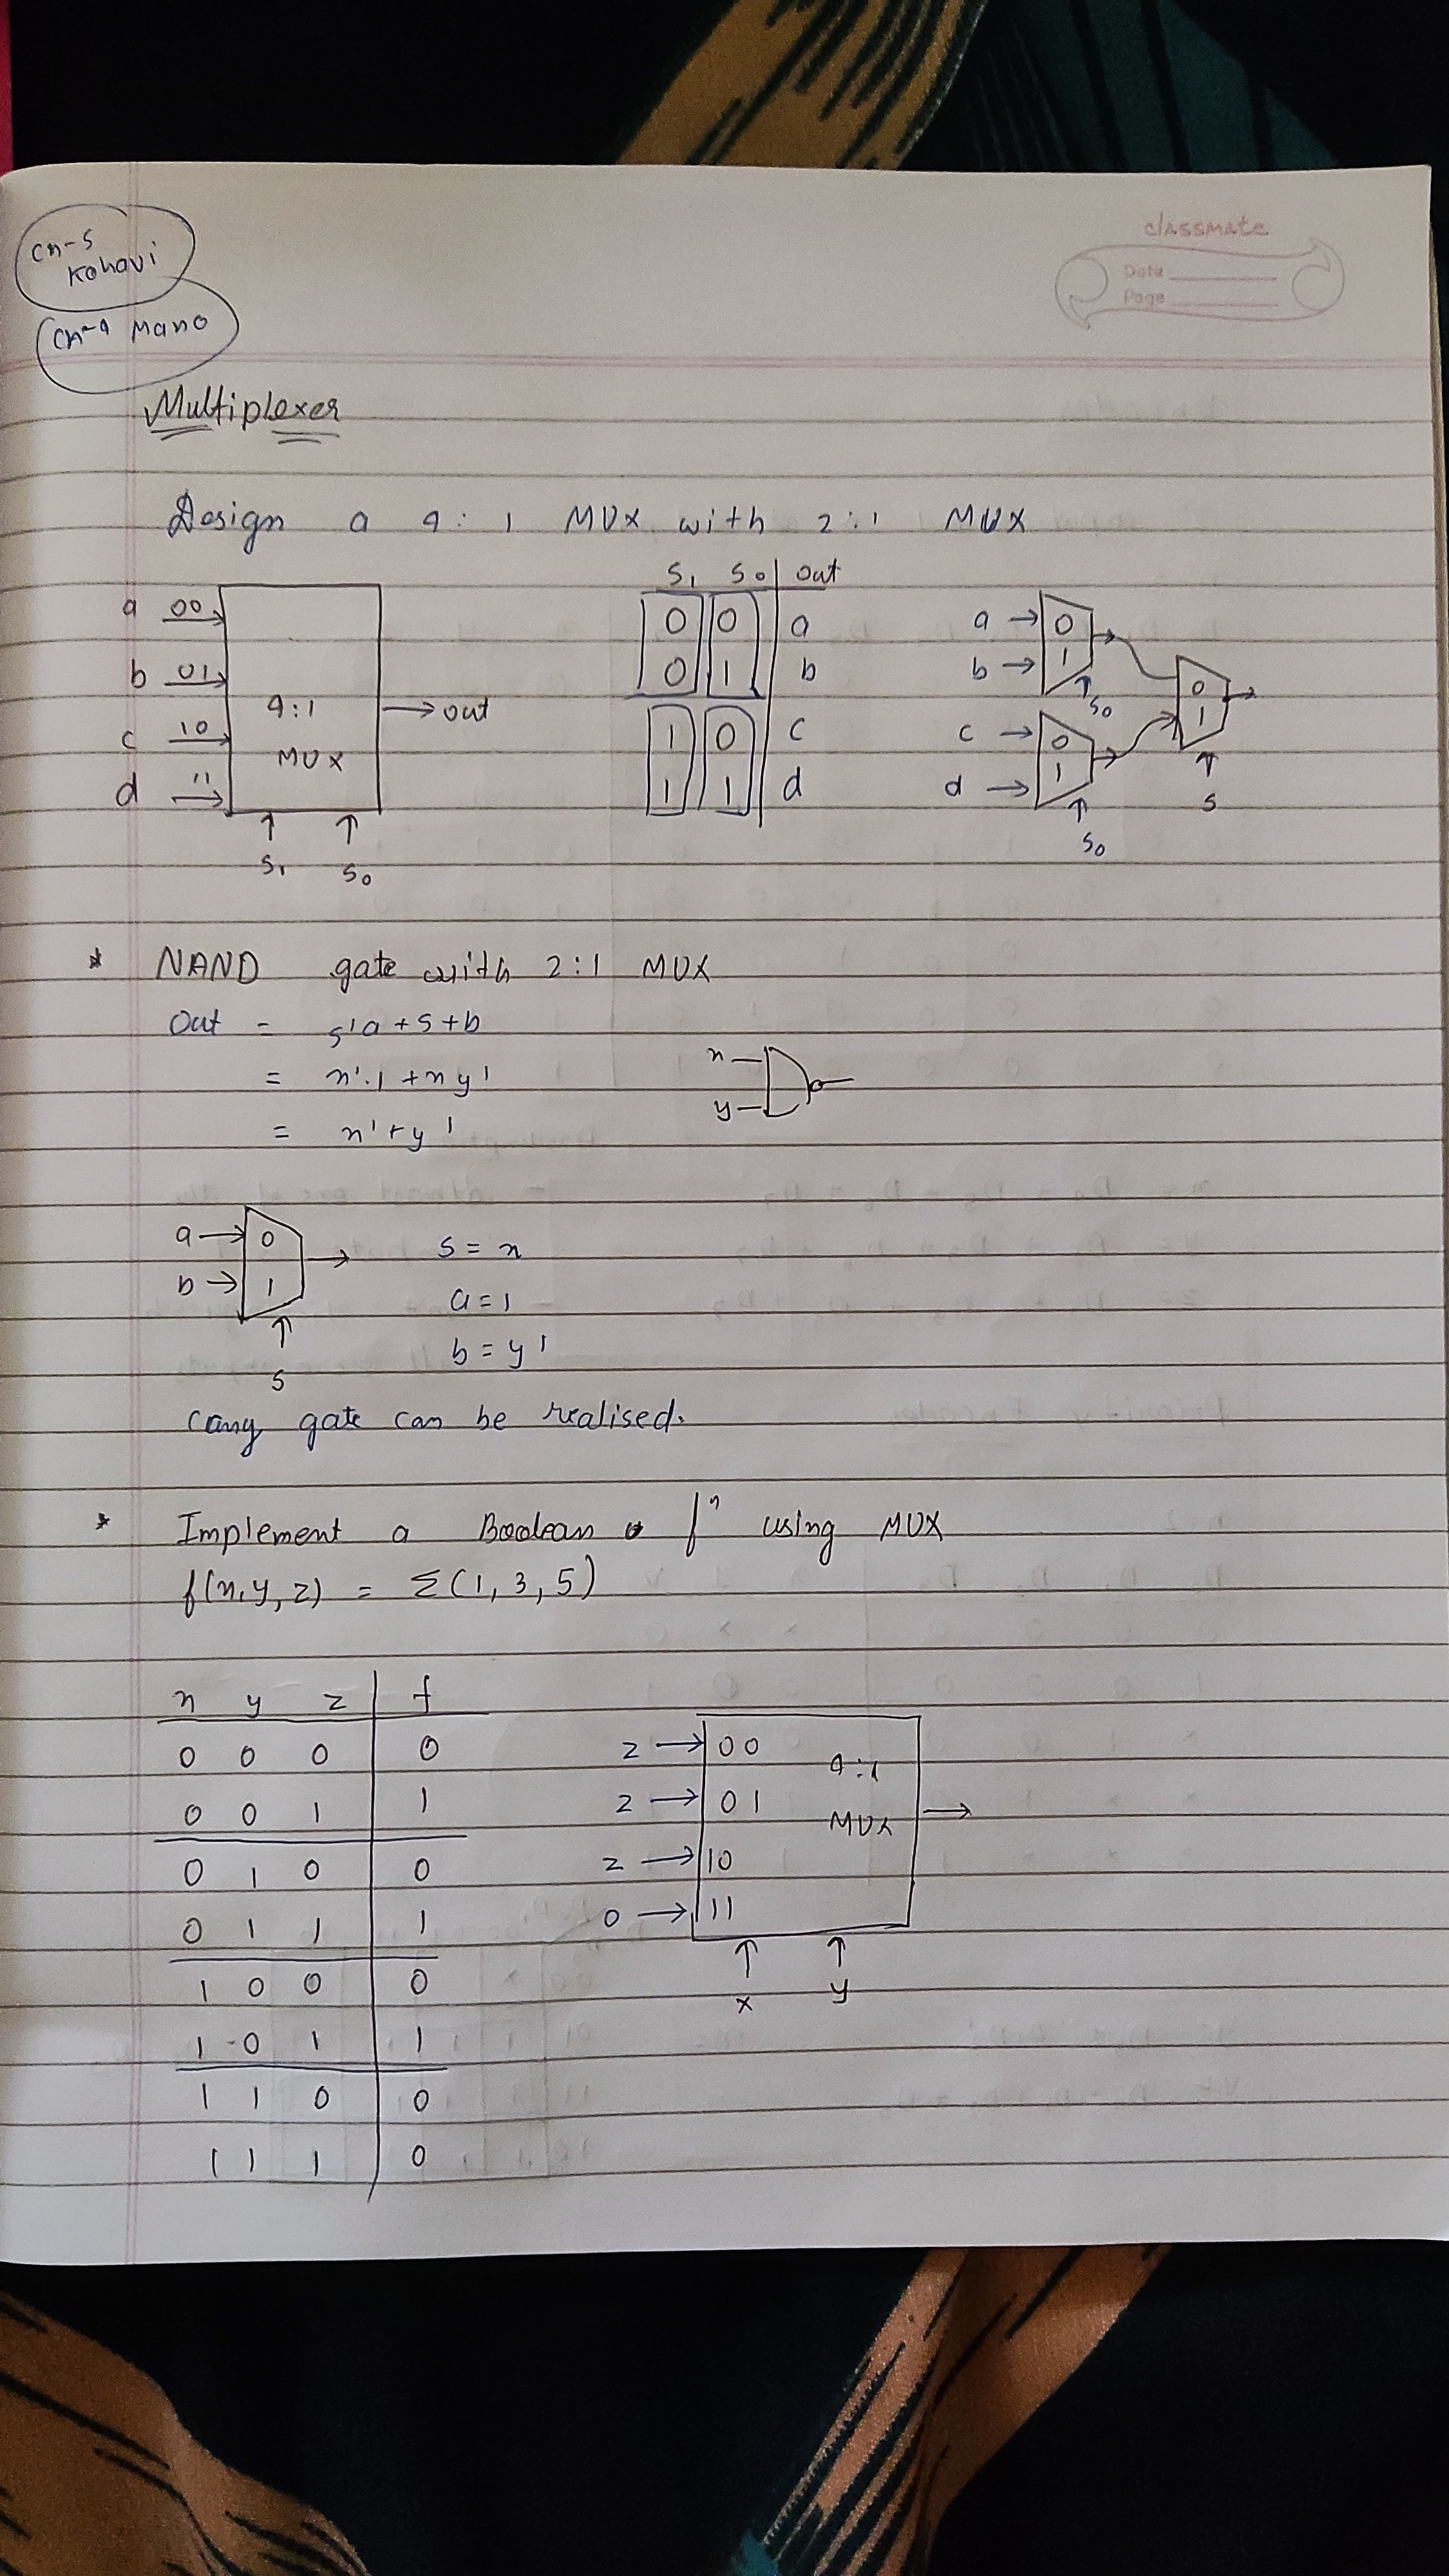 Ch-5
Kohavi
Ch-4 Mano
classmate
Date
Page
Multiplexer
Design a 4:1 MUX with 2:1 MUX
a 00
b 01
c 10
d 11
4:1
MUX
out
S1 S0
S1 S0 out
0 0 a
0 1 b
1 0 c
1 1 d
a 0
b 1
S0
c 0
d 1
S0
0
1
S
* NAND gate with 2:1 MUX
Out = s'a + s + b
= x'.1 + xy'
= x' + y'
x
y
a 0
b 1
S
S = x
a = 1
b = y'
(any gate can be realised.
* Implement a Boolean fⁿ using MUX
f(x,y,z) = Σ(1,3,5)
x y z f
0 0 0 0
0 0 1 1
0 1 0 0
0 1 1 1
1 0 0 0
1 0 1 1
1 1 0 0
1 1 1 0
z 00
z 01
z 10
0 11
4:1
MUX
x y